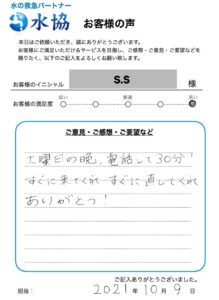 水の救急パートナー
水協 お客様の声
本日はご依頼いただき、誠にありがとうございます。
お客様にご満足いただけるサービスを目指し、ご感想・ご意見・ご要望などを
賜りたく、以下のご記入をよろしくお願い致します。
お客様のイニシャル S.S 様
低い 普通 高い
お客様の満足度
ご意見・ご感想・ご要望など
土曜日の晩,電話して30分!
すぐに来てくれ すぐに直してくれ
ありがとう!
ご記入ありがとうございました。
担当: 2021年10月9日